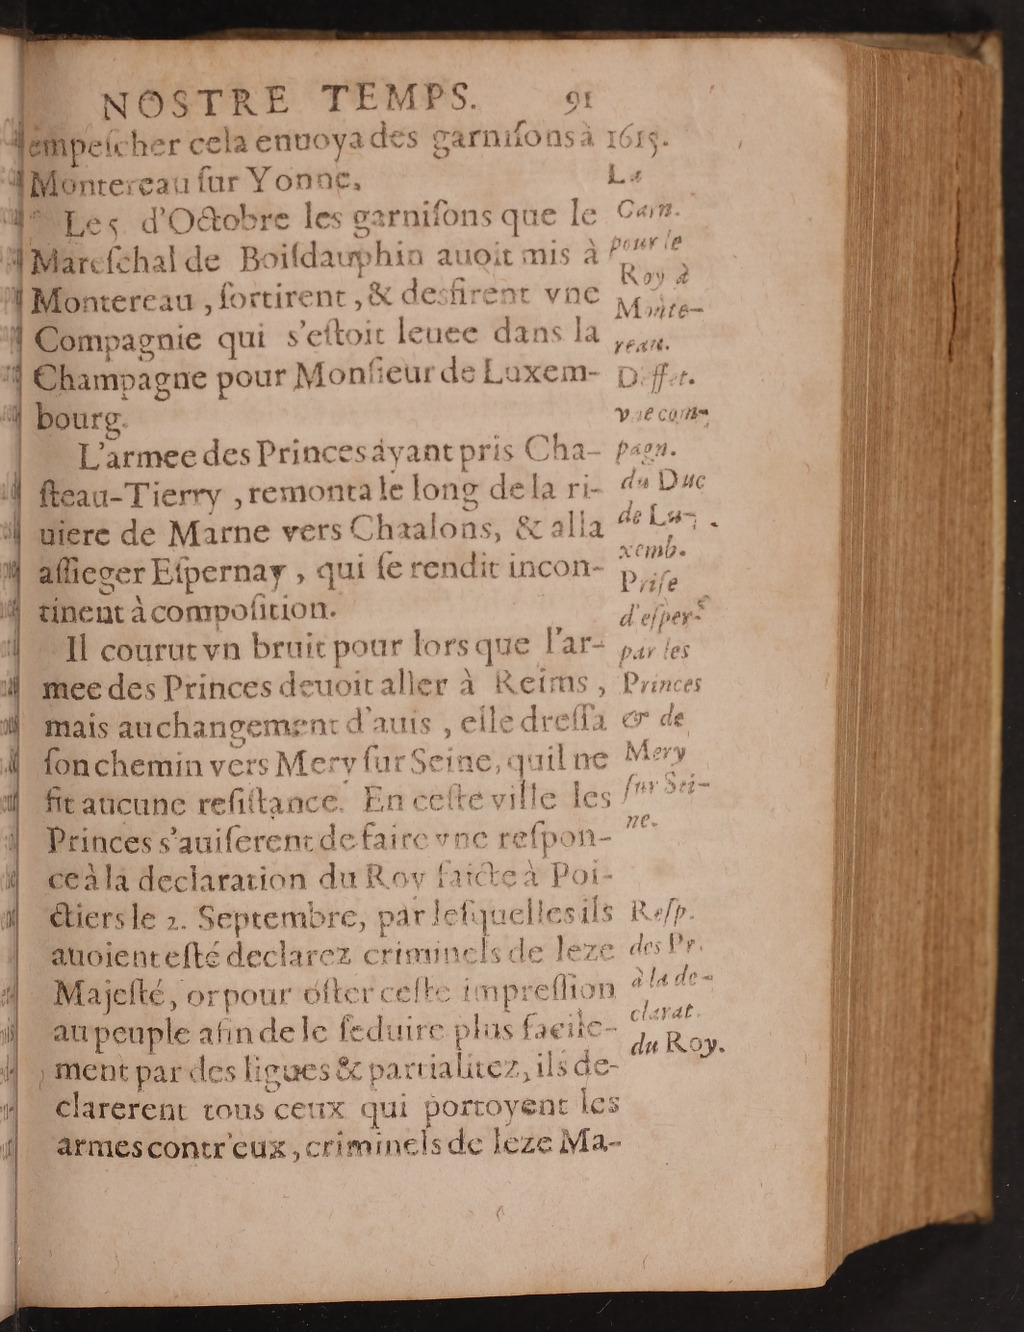 NOSTRE TEMPS. 91
empeſcher cela enuoya des garniſons à
Montereau ſur Yonne,
Les d'Octobre les garniſons que le
Mareſchal de Boiſdauphin auoit mis à
Montereau, ſortirent, & desfirent vne
Compagnie qui s'eſtoit leuee dans la
Champagne pour Monſieur de Luxem-
bourg.
L'armee des Princes ayant pris Cha-
ſteau-Tierry, remonta le long de la ri-
uiere de Marne vers Chaalons, & alla
aſſieger Eſpernay, qui ſe rendit incon-
tinent à compoſition.
Il courut vn bruit pour lors que l'ar-
mee des Princes deuoit aller à Reims,
mais au changement d'auis, elle dreſſa
ſon chemin vers Mery ſur Seine, quil ne
fit aucune reſiſtance. En ceſte ville les
Princes s'auiſerent de faire vne reſpon-
ce à la declaration du Roy faicte à Poi-
ctiers le 2. Septembre, par leſquelles ils
auoient eſté declarez criminels de leze
Majeſté, or pour oſter ceſte impreſſion
au peuple afin de le ſeduire plus facile-
ment par des ligues & partialitez, ils de-
clarerent tous ceux qui portoyent les
armes contr'eux, criminels de leze Ma-
1615.
La
Cam.
pour le
Roy à
Monte-
reau.
Diffet.
vne com-
pagn.
du Duc
de Lu-
xemb.
Priſe
d'eſper-
par les
Princes
& de
Mery
ſur Sei-
ne.
Reſp.
des Pr.
à la de-
clarat.
du Roy.